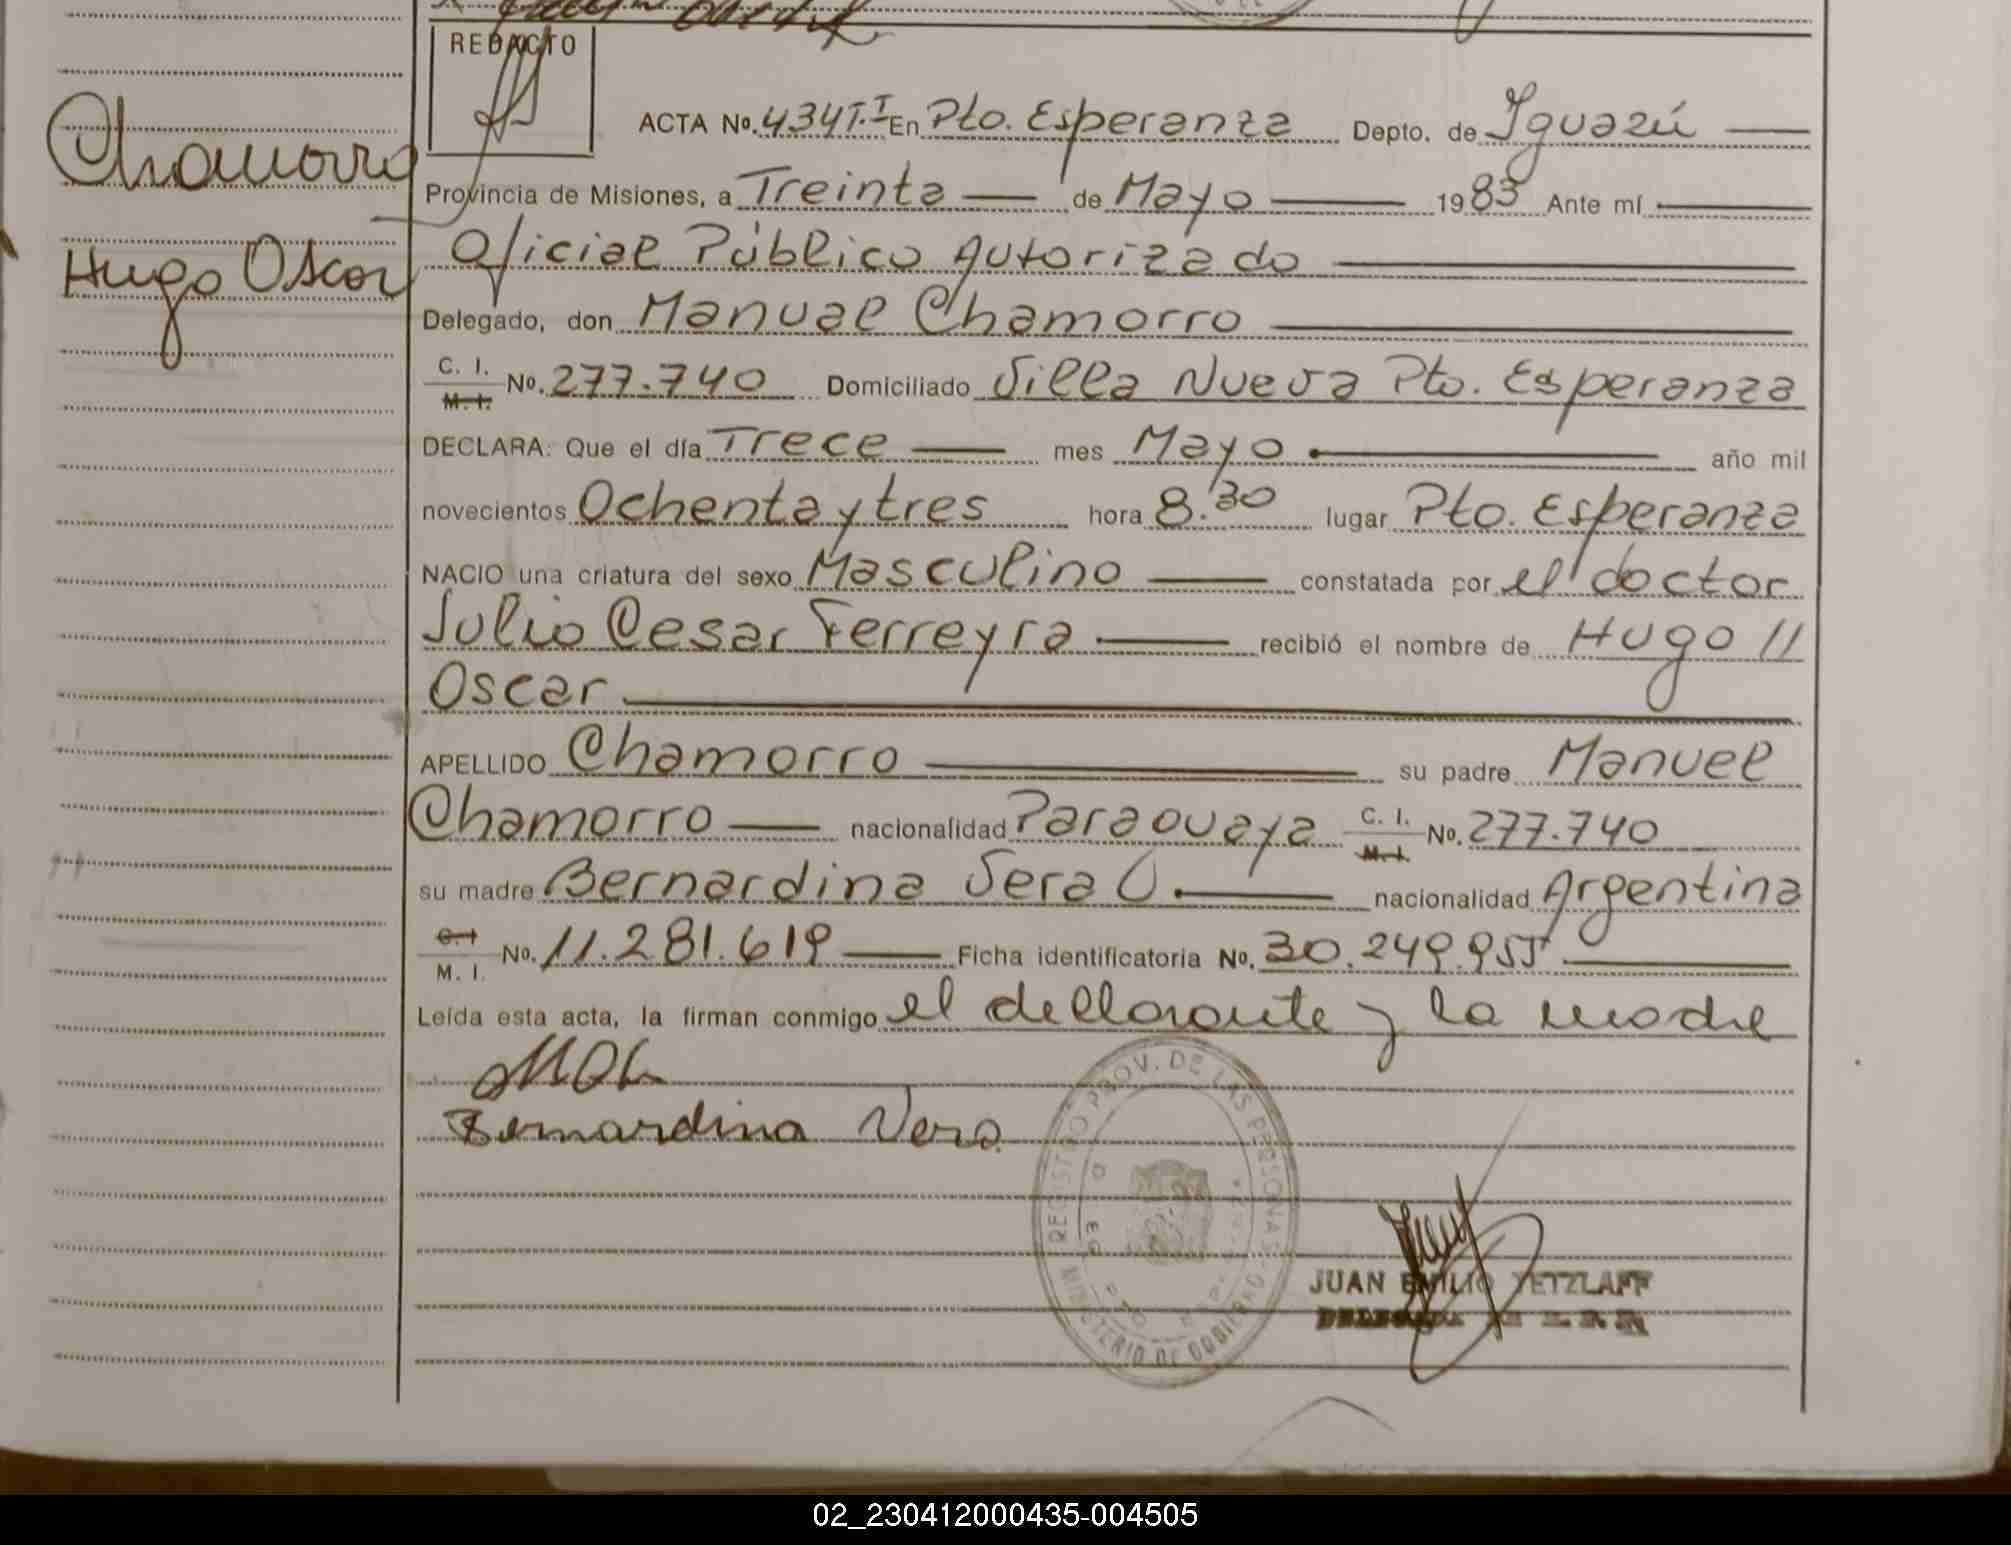 REDACTO
ACTA Nº. 434 T.I En Pto. Esperanza Depto. de Iguazú
Chamorro
Provincia de Misiones, a Treinta de Mayo 1983 Ante mí
Hugo Oscar
Oficial Público Autorizado
Delegado, don Manuel Chamorro
C. I. M. I. Nº. 277.740 Domiciliado Villa Nueva Pto. Esperanza
DECLARA: Que el día Trece mes Mayo año mil
novecientos Ochenta y tres hora 8.30 lugar Pto. Esperanza
NACIO una criatura del sexo Masculino constatada por el doctor
Julio Cesar Ferreyra recibió el nombre de Hugo //
Oscar
APELLIDO Chamorro su padre Manuel
Chamorro nacionalidad Paraguaya C. I. M. I. Nº. 277.740
su madre Bernardina Vera nacionalidad Argentina
C. I M. I. Nº. 11.281.619 Ficha identificatoria Nº. 30.249.955
Leída esta acta, la firman conmigo el declarante y la madre
Bernardina Vera
REGISTRO PROV. DE LAS PERSONAS
MINISTERIO DE GOBIERNO
JUAN EMILIO TETZLAFF
02_230412000435-004505